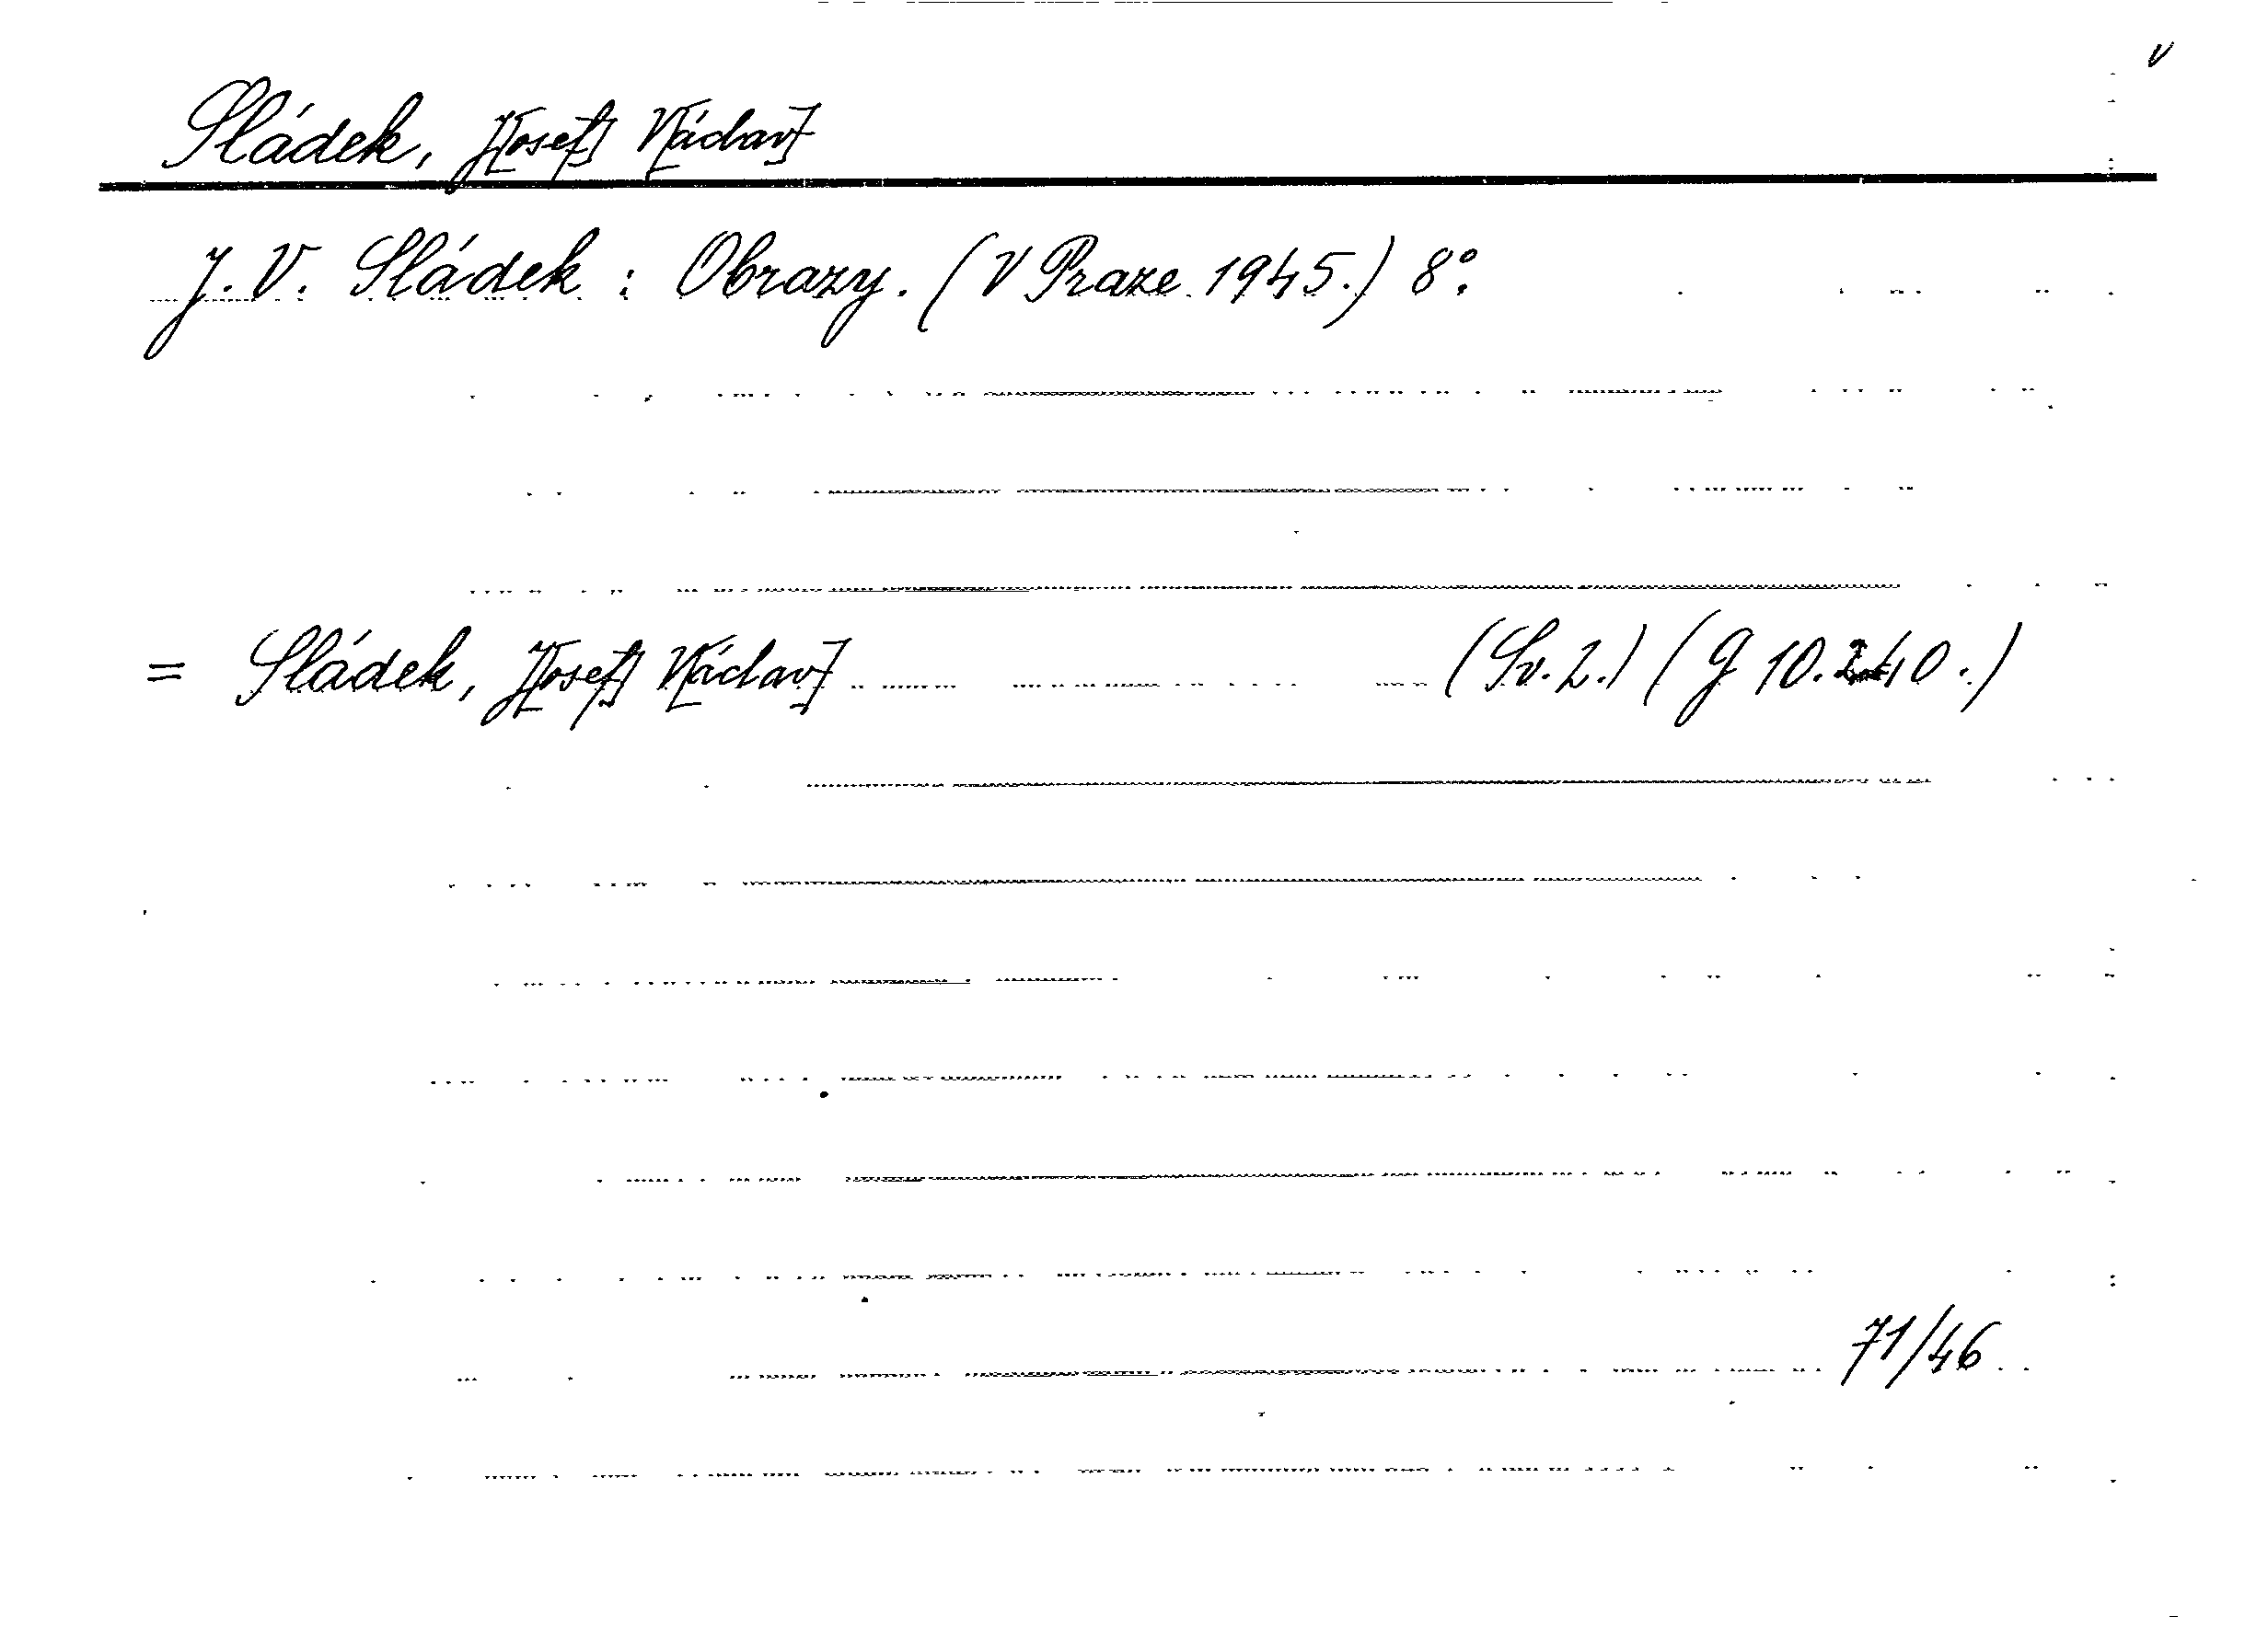 v
Sládek, J[osef] V[áclav]
J. V. Sládek: Obrazy. (V Praze 1945.) 8°.
= Sládek, J[osef] V[áclav] (Sv. 2.) (G 10.240.)
71/46